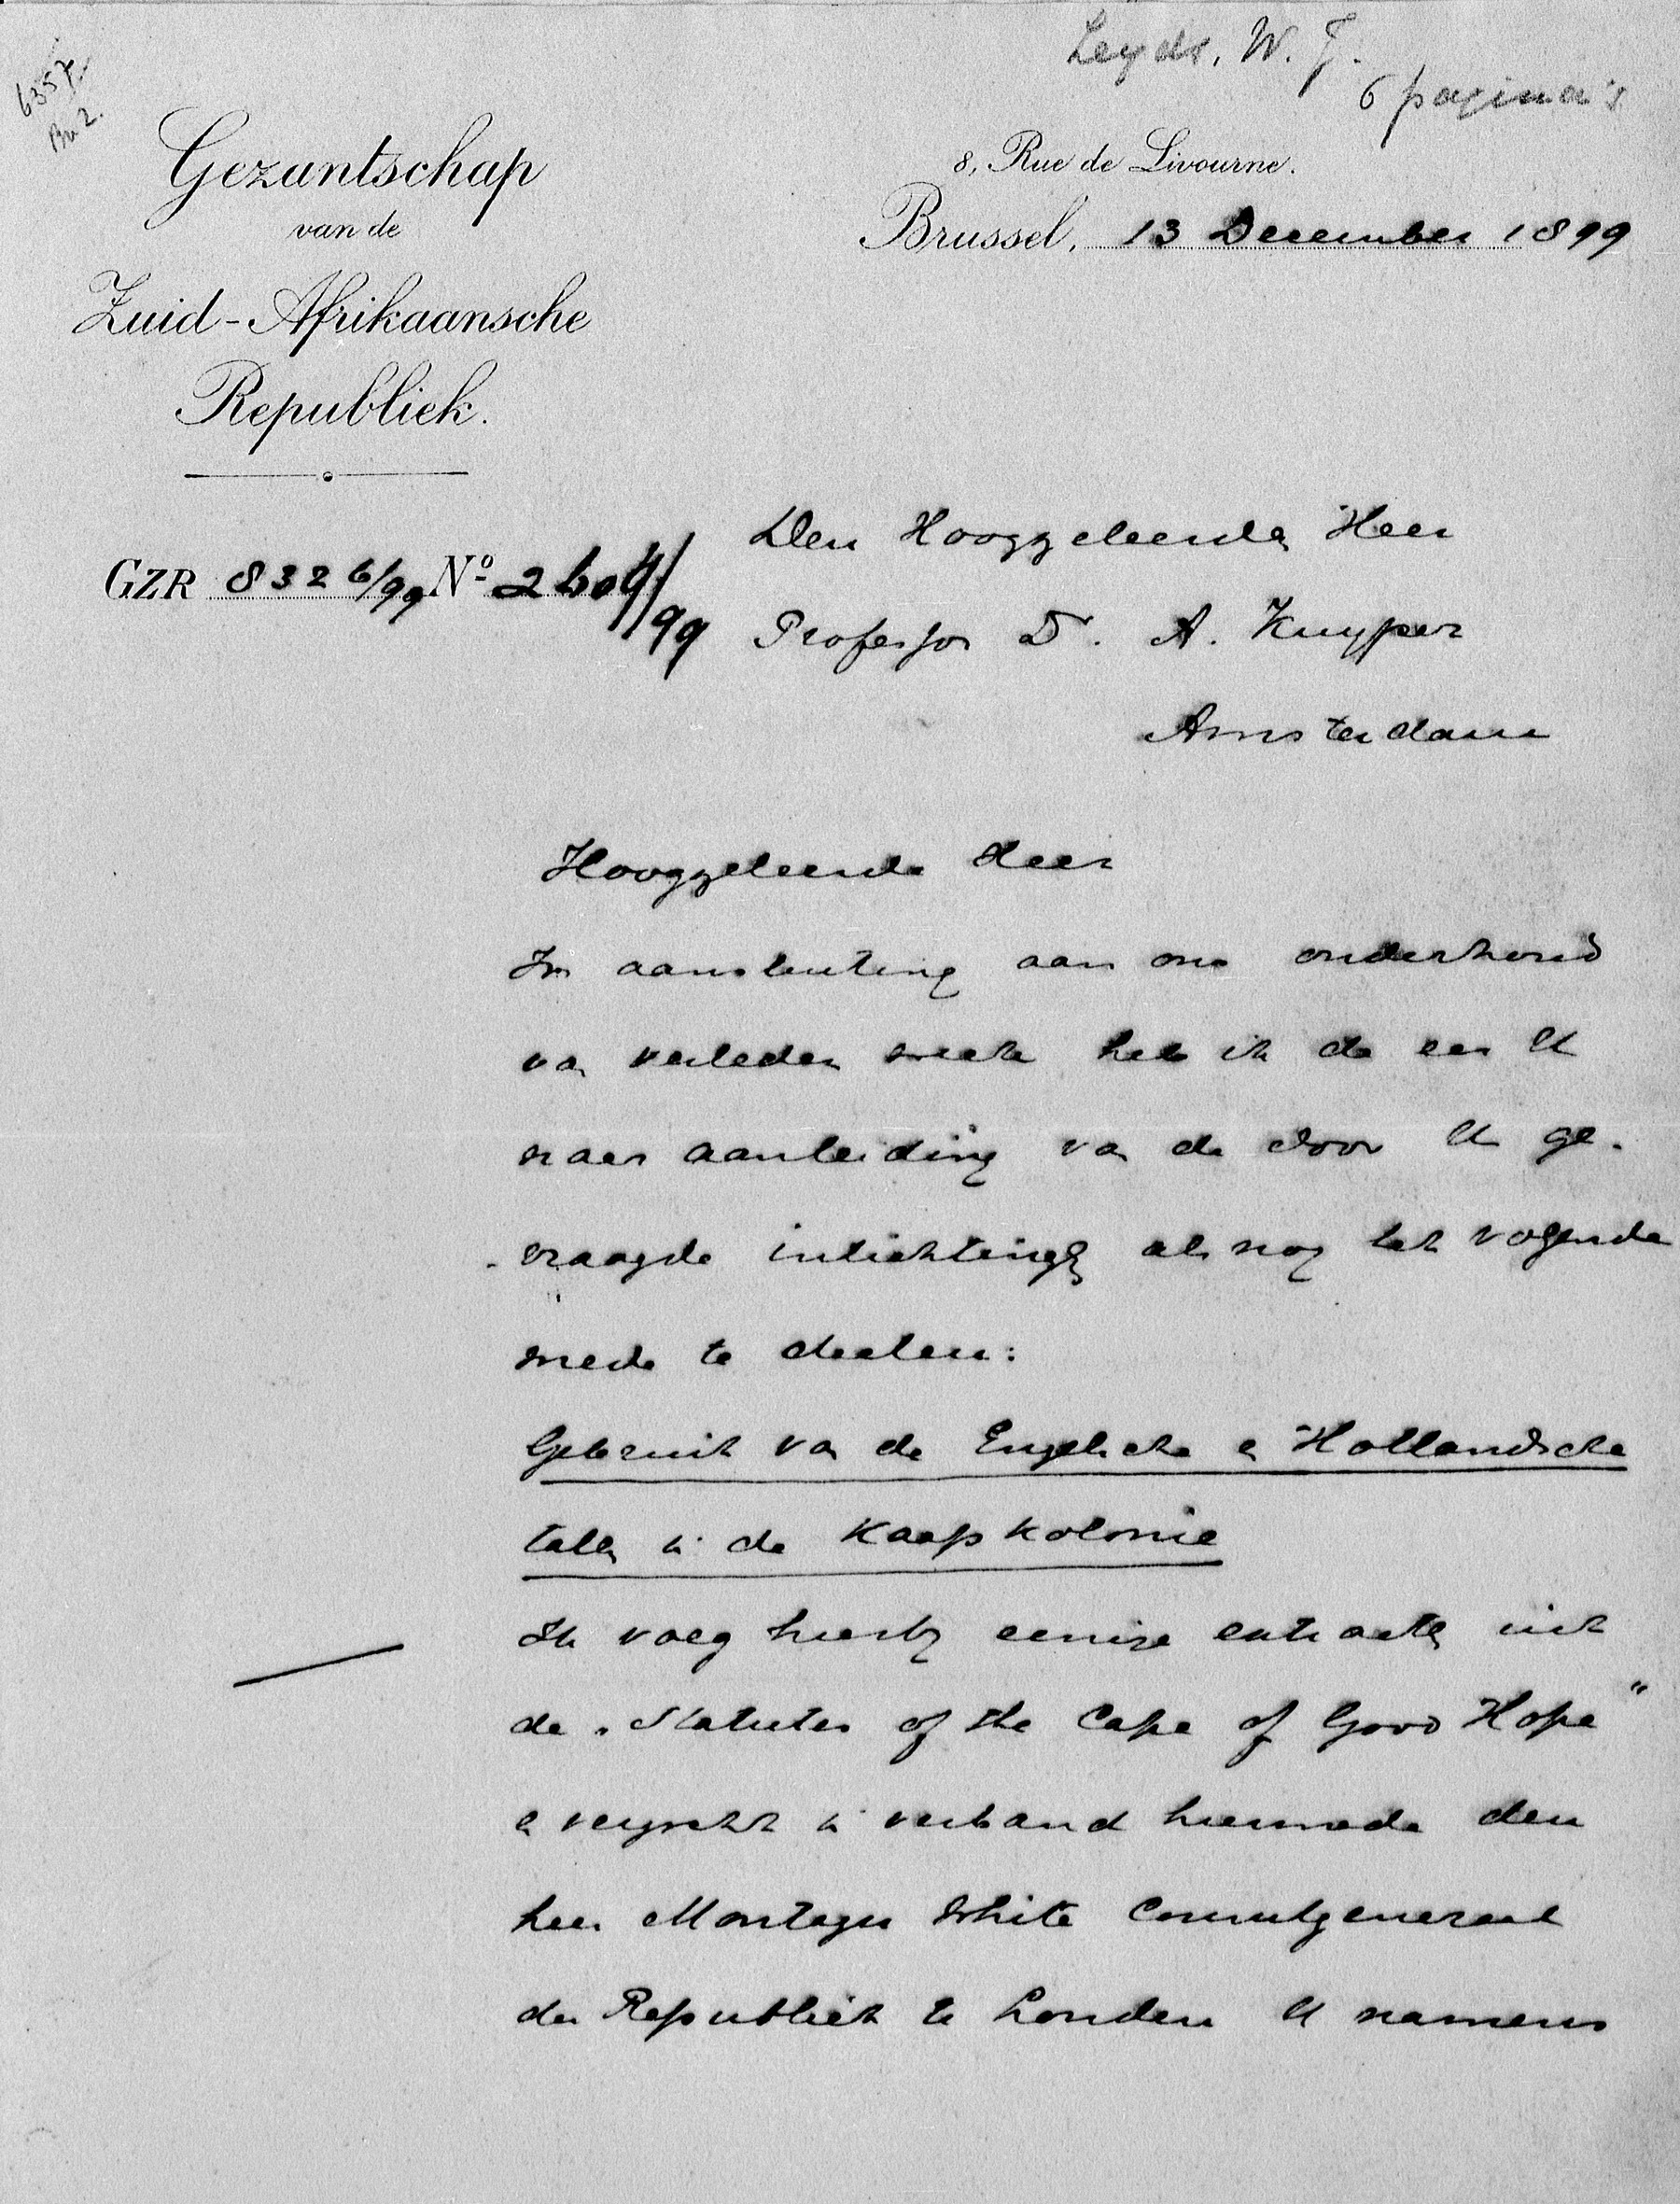 6357
Br. 2.
Leyds, W. J.
6 pagina's
Gezantschap
van de
Zuid-Afrikaansche
Republiek.
8, Rue de Livourne.
Brussel, 13 December 1899
GZR 8326/99 No 2604/99
Den Hooggeleerden Heer
Professor Dr. A. Kuyper
Amsterdam
Hooggeleerde Heer
In aansluiting aan ons onderhoud
van verleden week heb ik de eer U
naar aanleiding van de door U ge-
vraagde inlichtingen alsnog het volgende
mede te deelen:
Gebruik van de Engelsche en Hollandsche
talen in de Kaapkolonie
Ik voeg hierbij eenige extracten uit
de „Statutes of the Cape of Good Hope"
en verzocht in verband hiermede den
heer Montagu White Consulgeneraal
der Republiek te Londen U namens